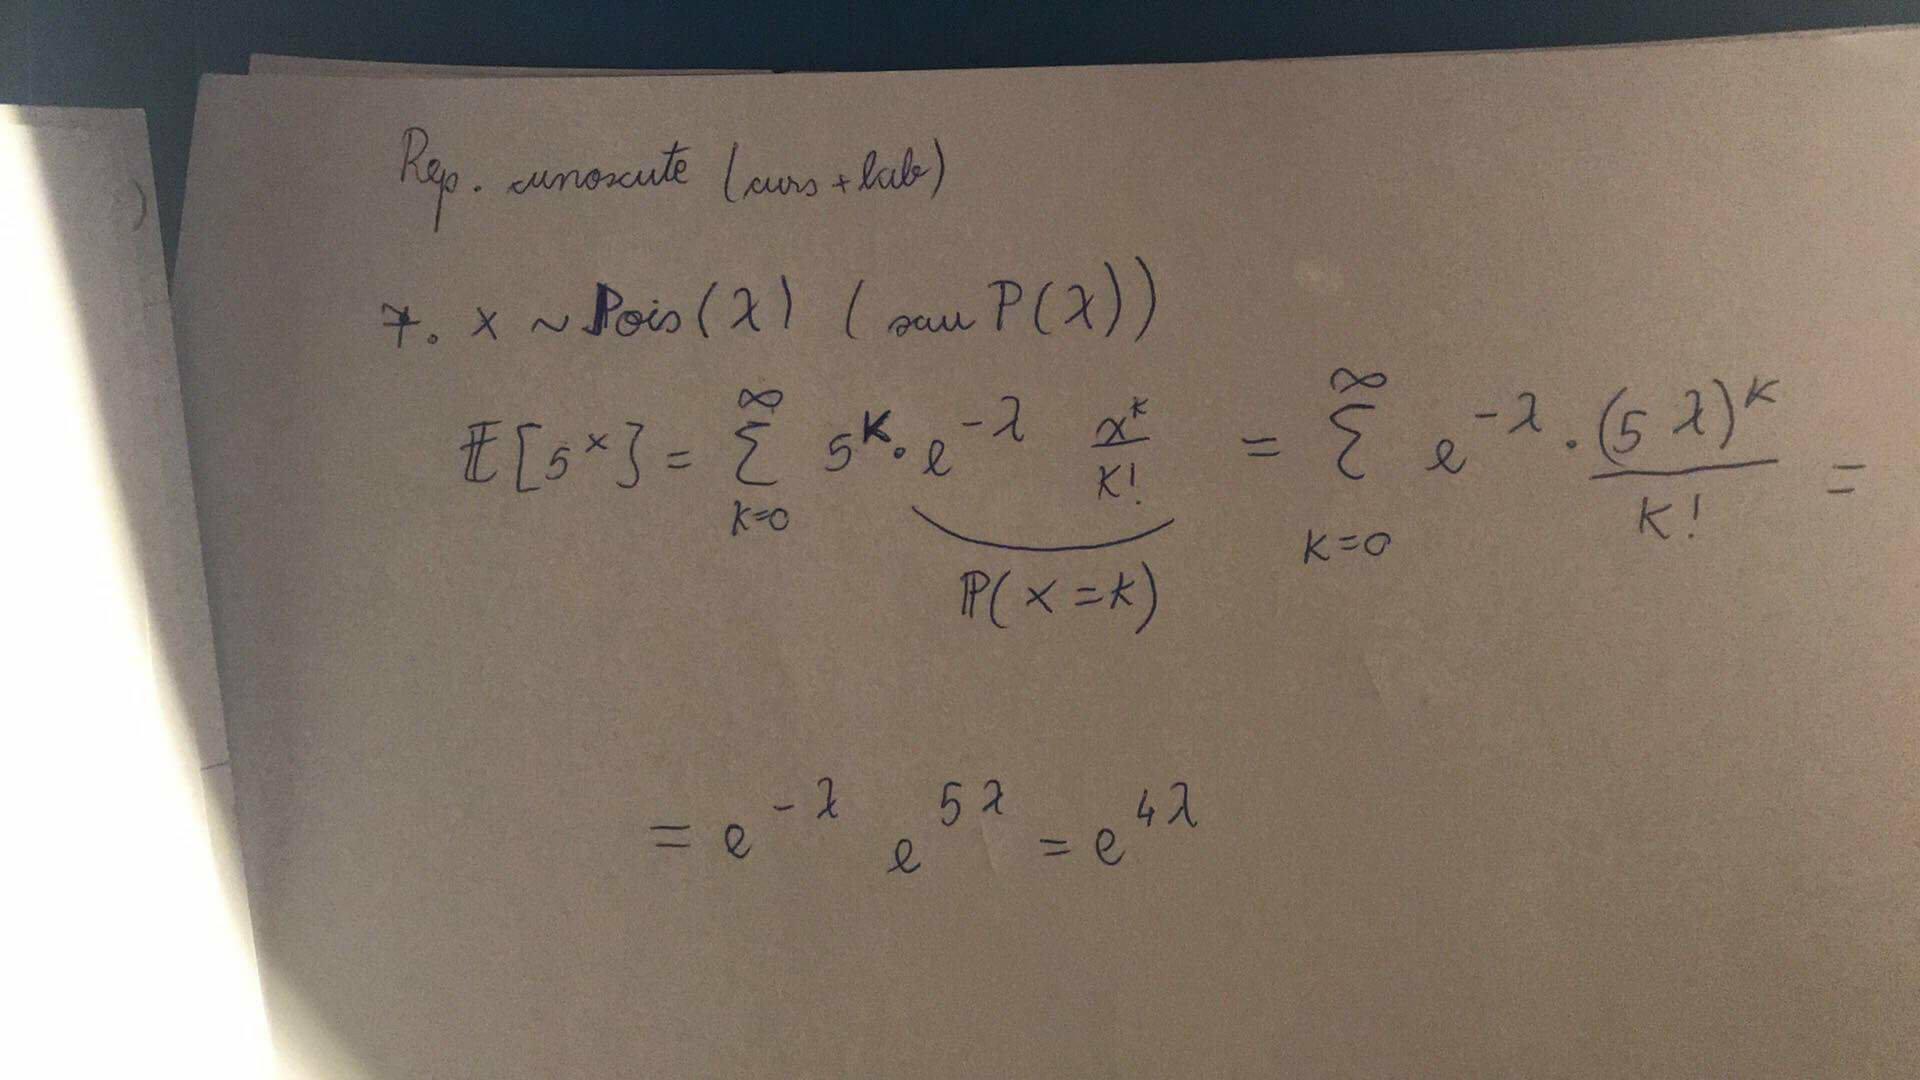 Rep. cunoscute (curs + lab)
7. X ~ Pois(λ) (sau P(λ))
𝔼[5^X] = ∑_{k=0}^{∞} 5^k · e^{-λ} λ^k/k! = ∑_{k=0}^{∞} e^{-λ} · (5λ)^k/k! =
ℙ(X=k)
= e^{-λ} e^{5λ} = e^{4λ}